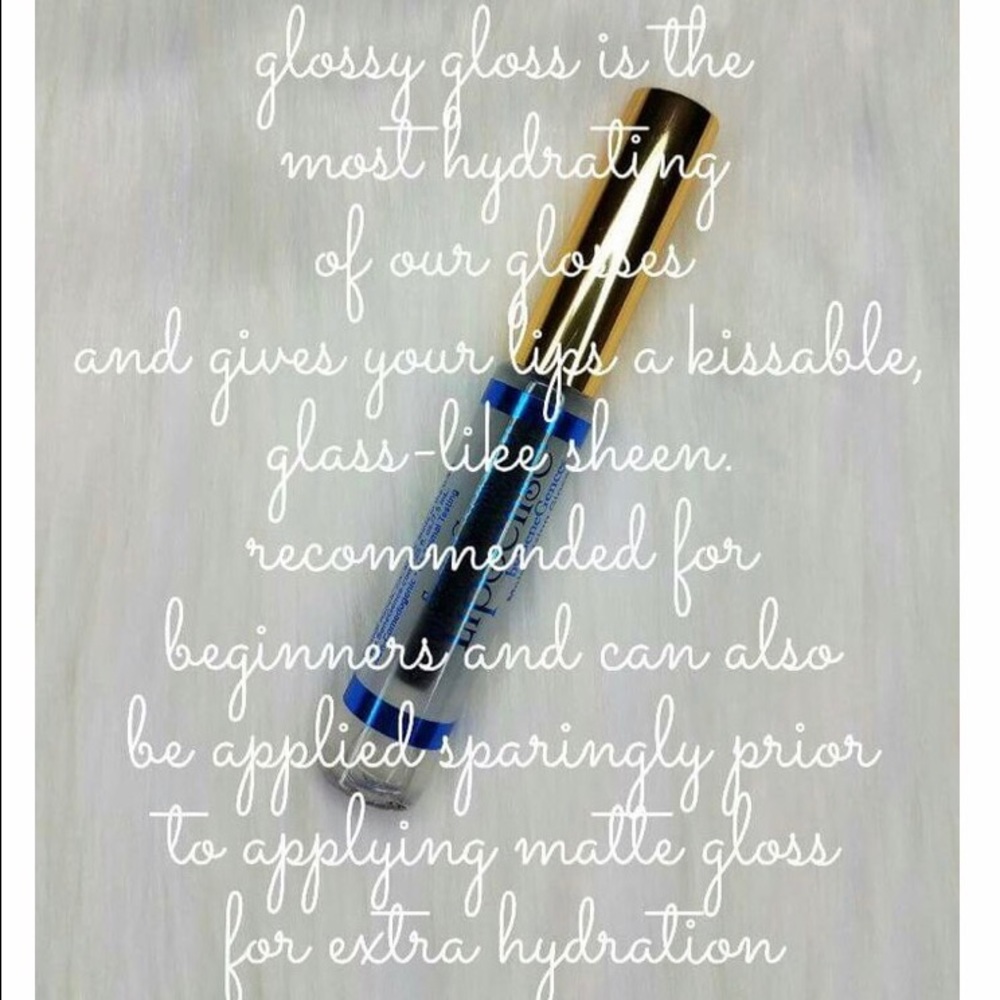 glossy gloss is the
most hydrating
of our glosses
and gives your lips a kissable,
glass-like sheen.
recommended for
beginners and can also
be applied sparingly prior
to applying matte gloss
for extra hydration
LipSense
by SeneGence